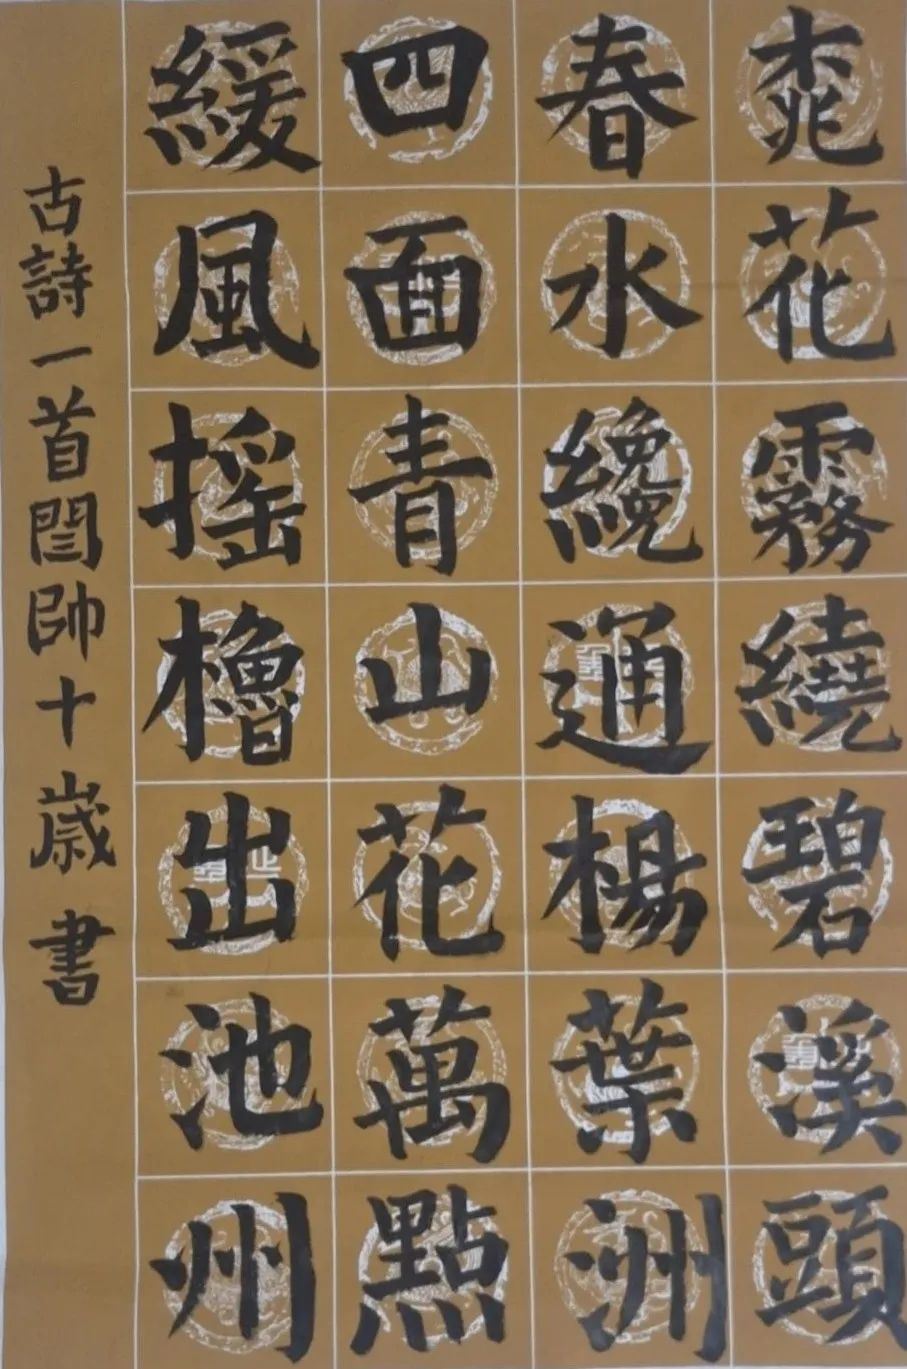 桃花霧繞碧溪頭
春水纔通楊葉洲
四面青山花萬點
緩風搖櫓出池州
古詩一首閆帥十歲書